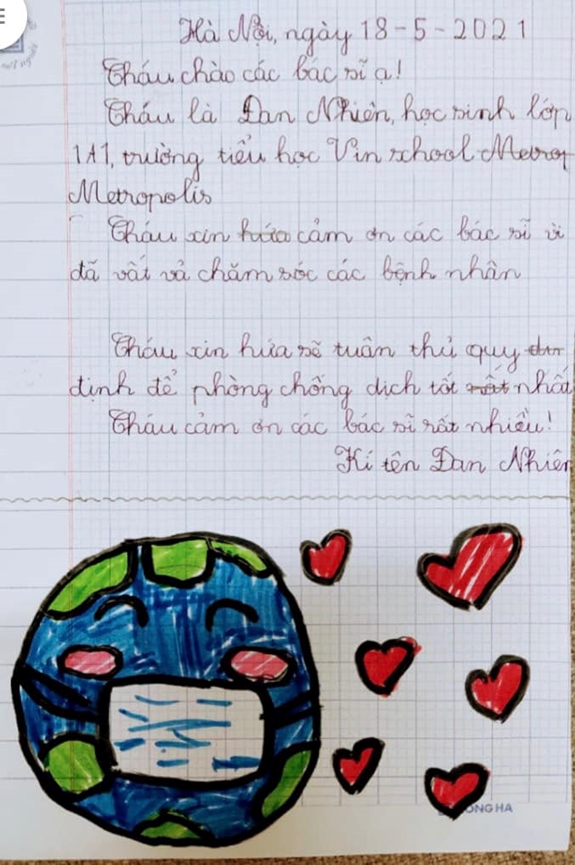 Hà Nội, ngày 18-5-2021
Cháu chào các bác sĩ ạ!
Cháu là Đan Nhiên, học sinh lớp
1A1, trường tiểu học Vin school Metrop
Metropolis
Cháu xin hứa cảm ơn các bác sĩ vì
đã vất vả chăm sóc các bệnh nhân
Cháu xin hứa sẽ tuân thủ quy
định để phòng chống dịch tốt nhất
Cháu cảm ơn các bác sĩ rất nhiều!
Kí tên Đan Nhiên
ONG HA